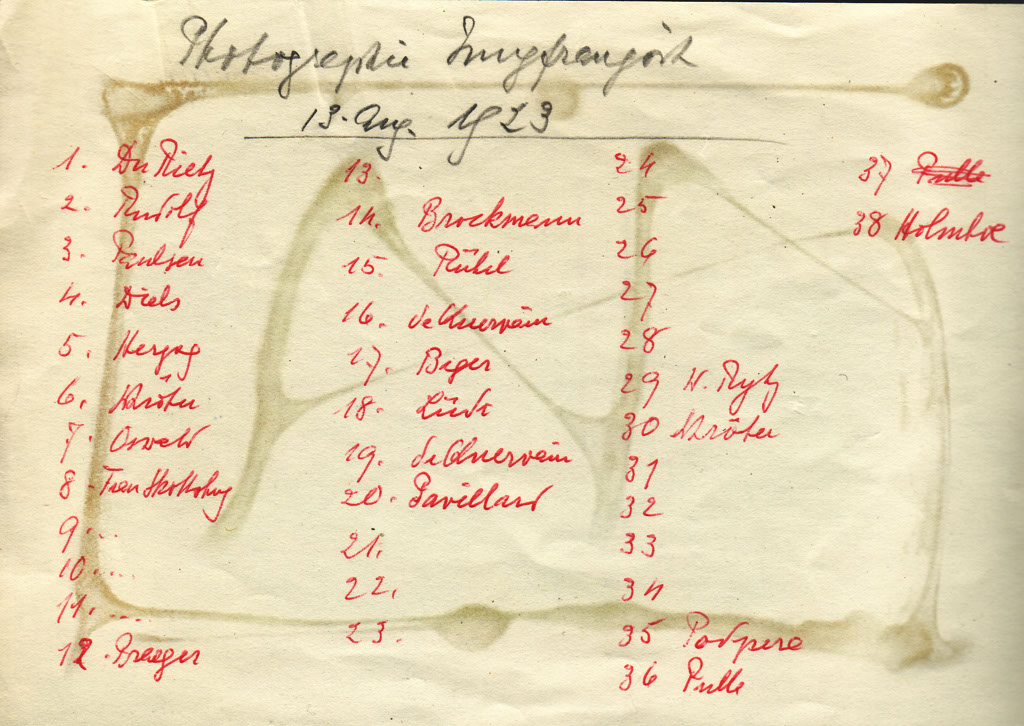 Photographie Jungfraujoch
13. Aug. 1923
1. Du Rietz
2. Rudolf
3. Paulsen
4. Diels
5. Herzog
6. Schröter
7. Oswald
8 - Frau
9. ...
10. ....
11. ....
12. Braeger
13.
14. Brockmann
15. Rübel
16. de Quervain
17. Beger
18. Lüdi
19. de Quervain
20. Pavillard
21.
22.
23.
24
25
26
27
28
29 W. Rytz
30 Schröter
31
32
33
34
35 Podpera
36 Pulle
37 Pulle
38 Holmboe